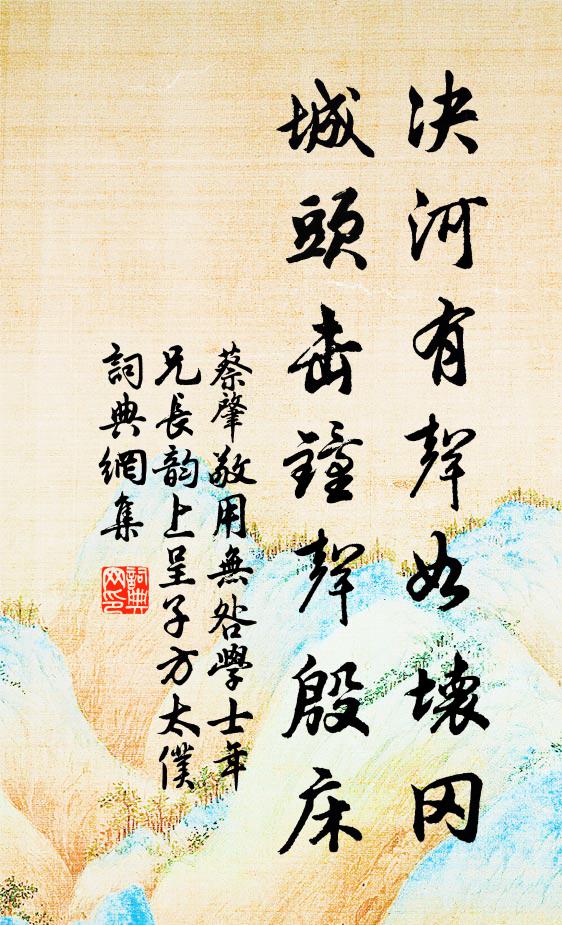 决河有聲如壊岡
城頭击鐘聲殷床
蔡肇敬用無咎學士年
兄長韵上呈子方太僕
詞典網集
詞典
网印